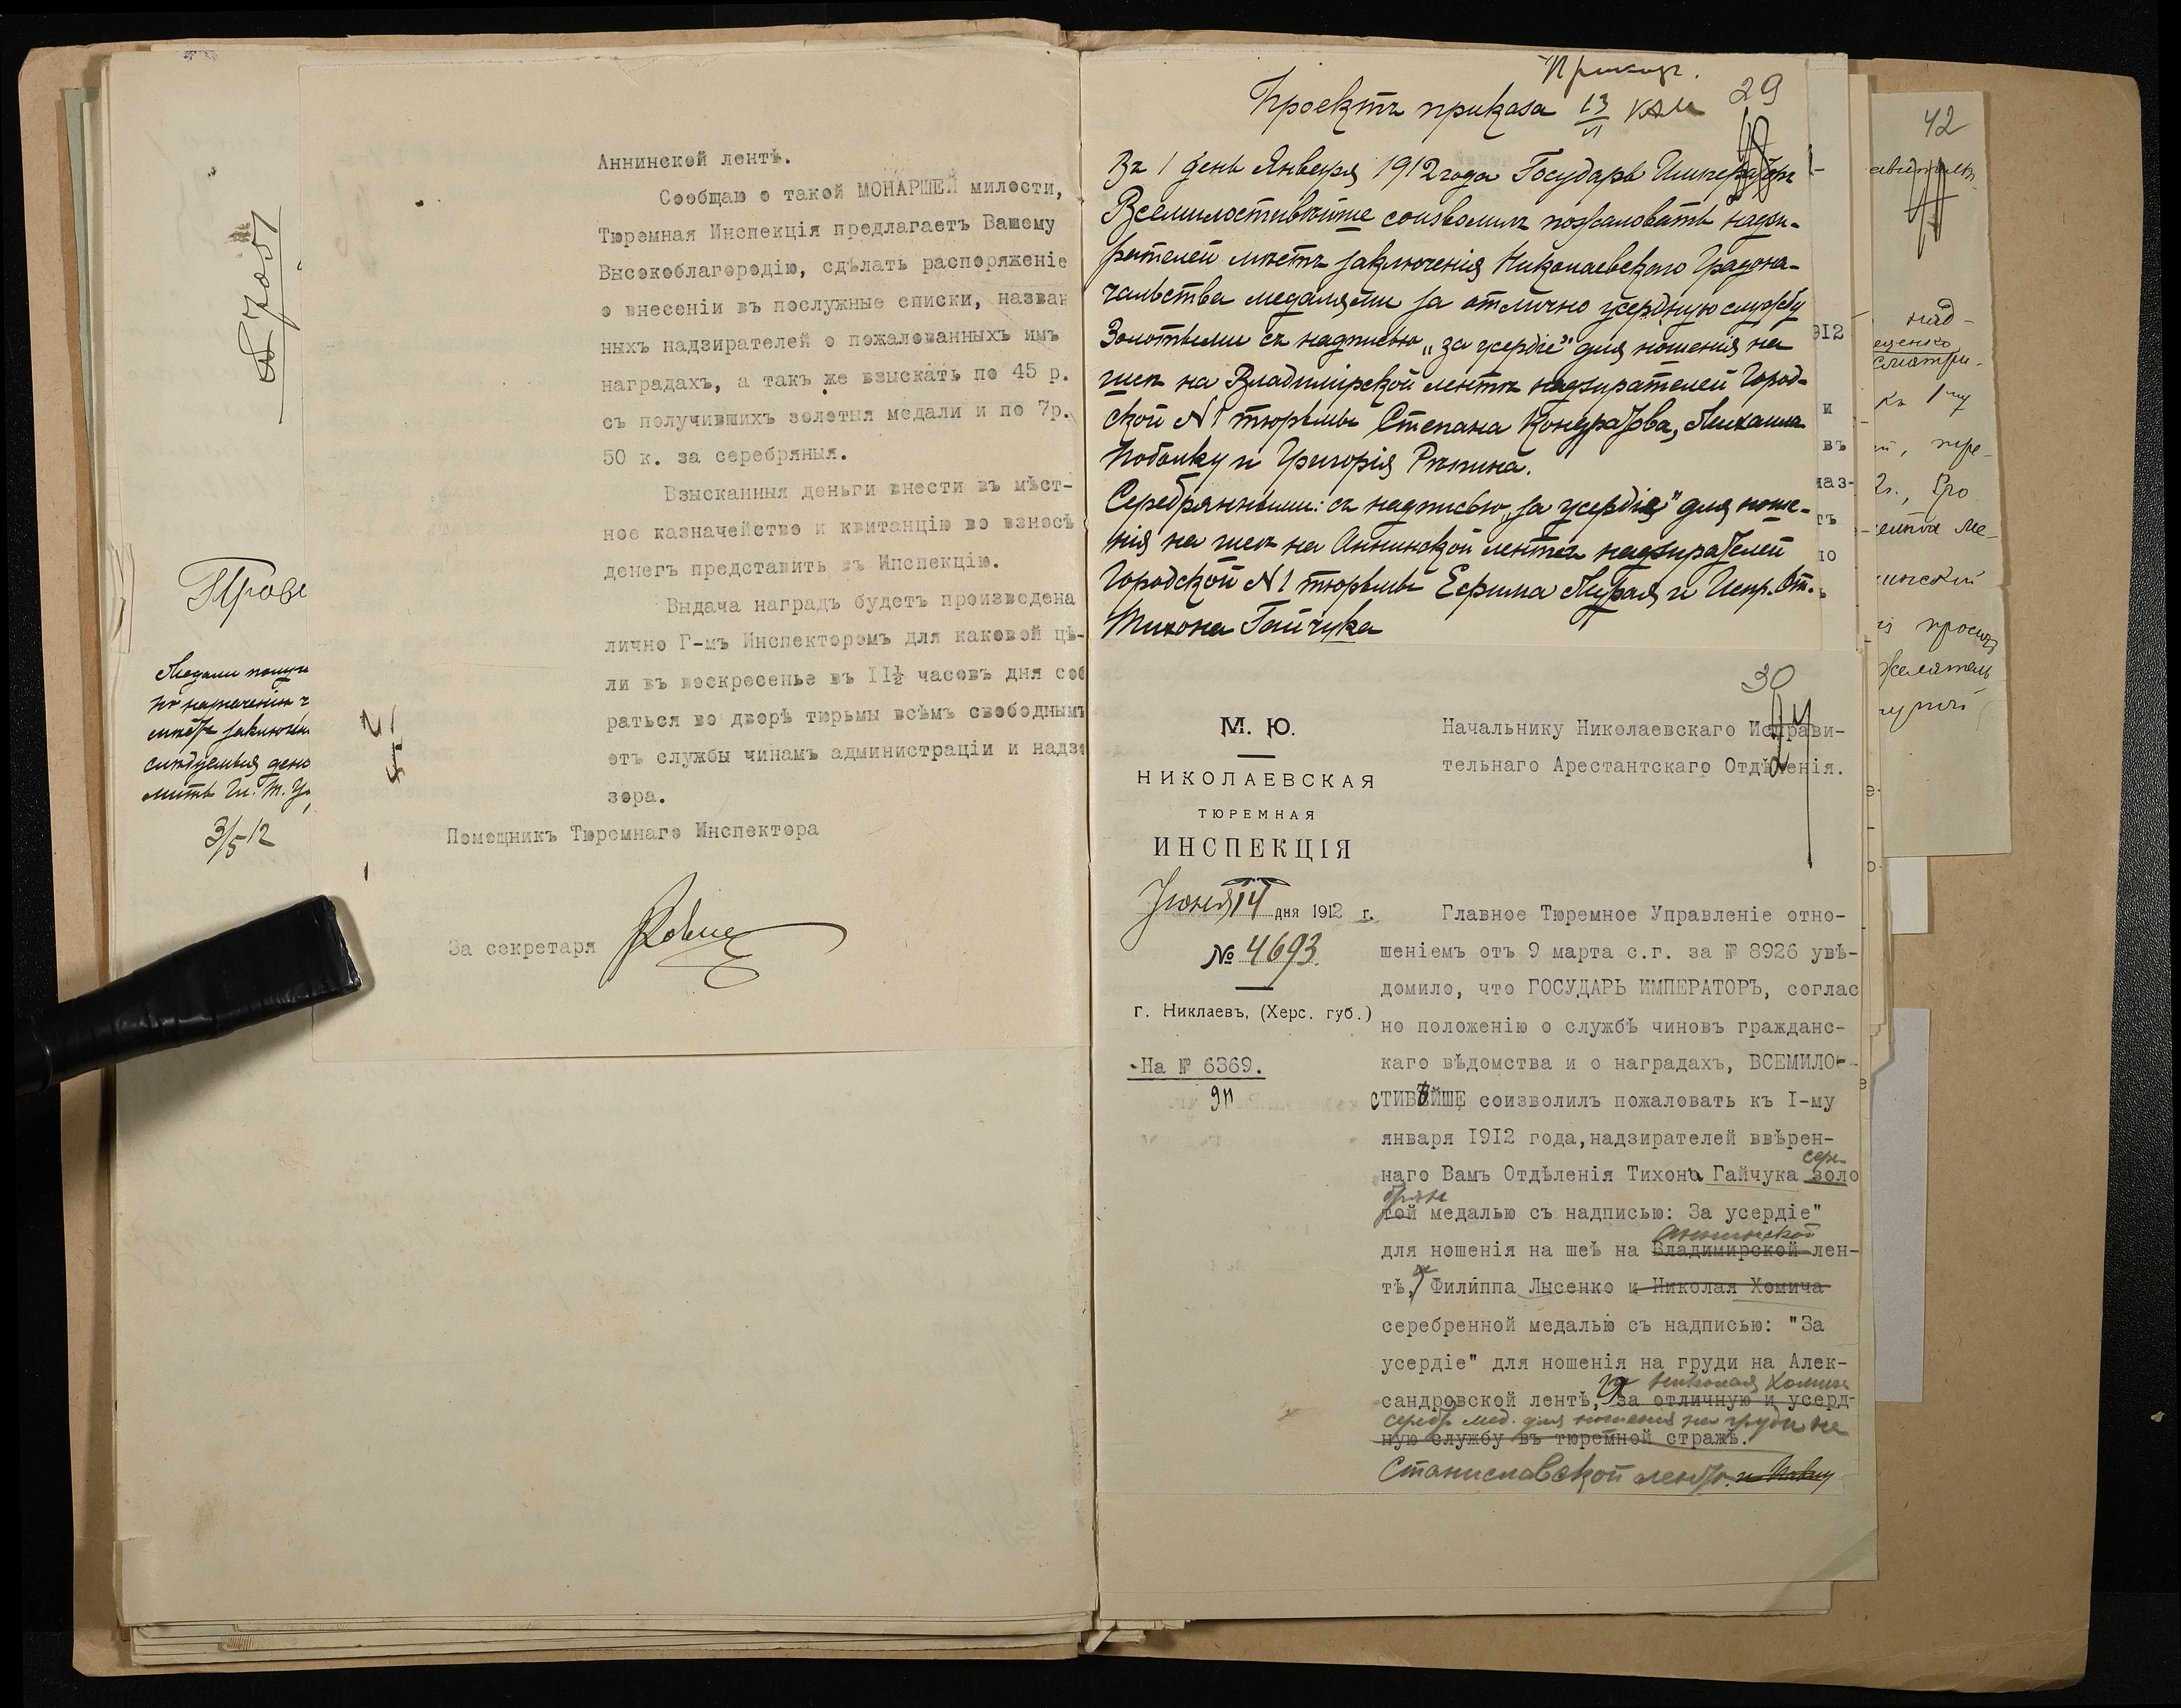 Аннинской лентѣ.
Сообщаю о такой МОНАРШЕЙ милости,
Тюремная Инспекція предлагаетъ Вашему
Высокоблагородію, сдѣлать распоряженіе
о внесеніи въ послужные списки, назван
ныхъ надзирателей о пожалованныхъ имъ
наградахъ, а такъ же взыскать по 45 р.
съ получившихъ золотыя медали и по 7р.
50 к. за серебряныя.
Взысканныя деньги внести въ мѣст-
ное казначейство и квитанцію во взносѣ
денегъ представить въ Инспекцію.
Выдача наградъ будетъ произведена
лично Г-мъ Инспекторомъ для каковой цѣ-
ли въ воскресенье въ II½ часовъ дня соб
раться во дворѣ тюрьмы всѣмъ свободнымъ
отъ службы чинамъ администраціи и надзи
зора.
Помощникъ Тюремнаго Инспектора
За секретаря
Медали получ
по назначенію
мѣстъ заключен
слѣдуемыя день
3/5 12
29
Проектъ приказа 13/VI
Въ 1 день Января 1912 года Государь Императоръ
Всемилостивѣйше соизволилъ пожаловать надзи-
рателей мѣстъ заключенія Николаевскаго Градона-
чальства медалями за отлично усердную службу
Золотыми съ надписью „за усердіе" для ношенія на
шеѣ на Владимірской лентѣ надзирателей Город-
ской N 1 тюрьмы Степана Кондратова, Михаила
и Григорія Рѣпина.
Серебрянными: съ надписью „за усердіе" для ноше-
нія на шеѣ на Аннинской лентѣ надзирателей
Городской N 1 тюрьмы Ефима Мураля и Испр. От.
Тихона Гайчука
30
М. Ю.
НИКОЛАЕВСКАЯ
ТЮРЕМНАЯ
ИНСПЕКЦІЯ
Іюня 14 дня 1912 г.
№ 4693.
г. Никлаевъ, (Херс. губ.)
На № 6369.
Начальнику Николаевскаго Исправи-
тельнаго Арестантскаго Отдѣленія.
Главное Тюремное Управленіе отно-
шеніемъ отъ 9 марта с.г. за № 8926 увѣ-
домило, что ГОСУДАРЬ ИМПЕРАТОРЪ, соглас
но положенію о службѣ чиновъ гражданс-
каго вѣдомства и о наградахъ, ВСЕМИЛО-
СТИВѢЙШЕ соизволилъ пожаловать къ I-му
января 1912 года, надзирателей ввѣрен-
сере-
наго Вамъ Отдѣленія Тихона Гайчука золо
брян
той медалью съ надписью: За усердіе"
Аннинской
для ношенія на шеѣ на Владимирской лен-
тѣ, Филиппа Лысенко и Николая Хомича
серебренной медалью съ надписью: "За
усердіе" для ношенія на груди на Алек-
Николая Хомича
сандровской лентѣ, за отличную и усерд-
серебр мед. для ношенія на груди на
ную службу въ тюремной стражѣ.
Станиславской лентѣ.
42
912
и
въ
над-
ечино
смотри-
къ 1му
пре-
просить